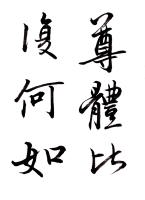 尊體比
復何如